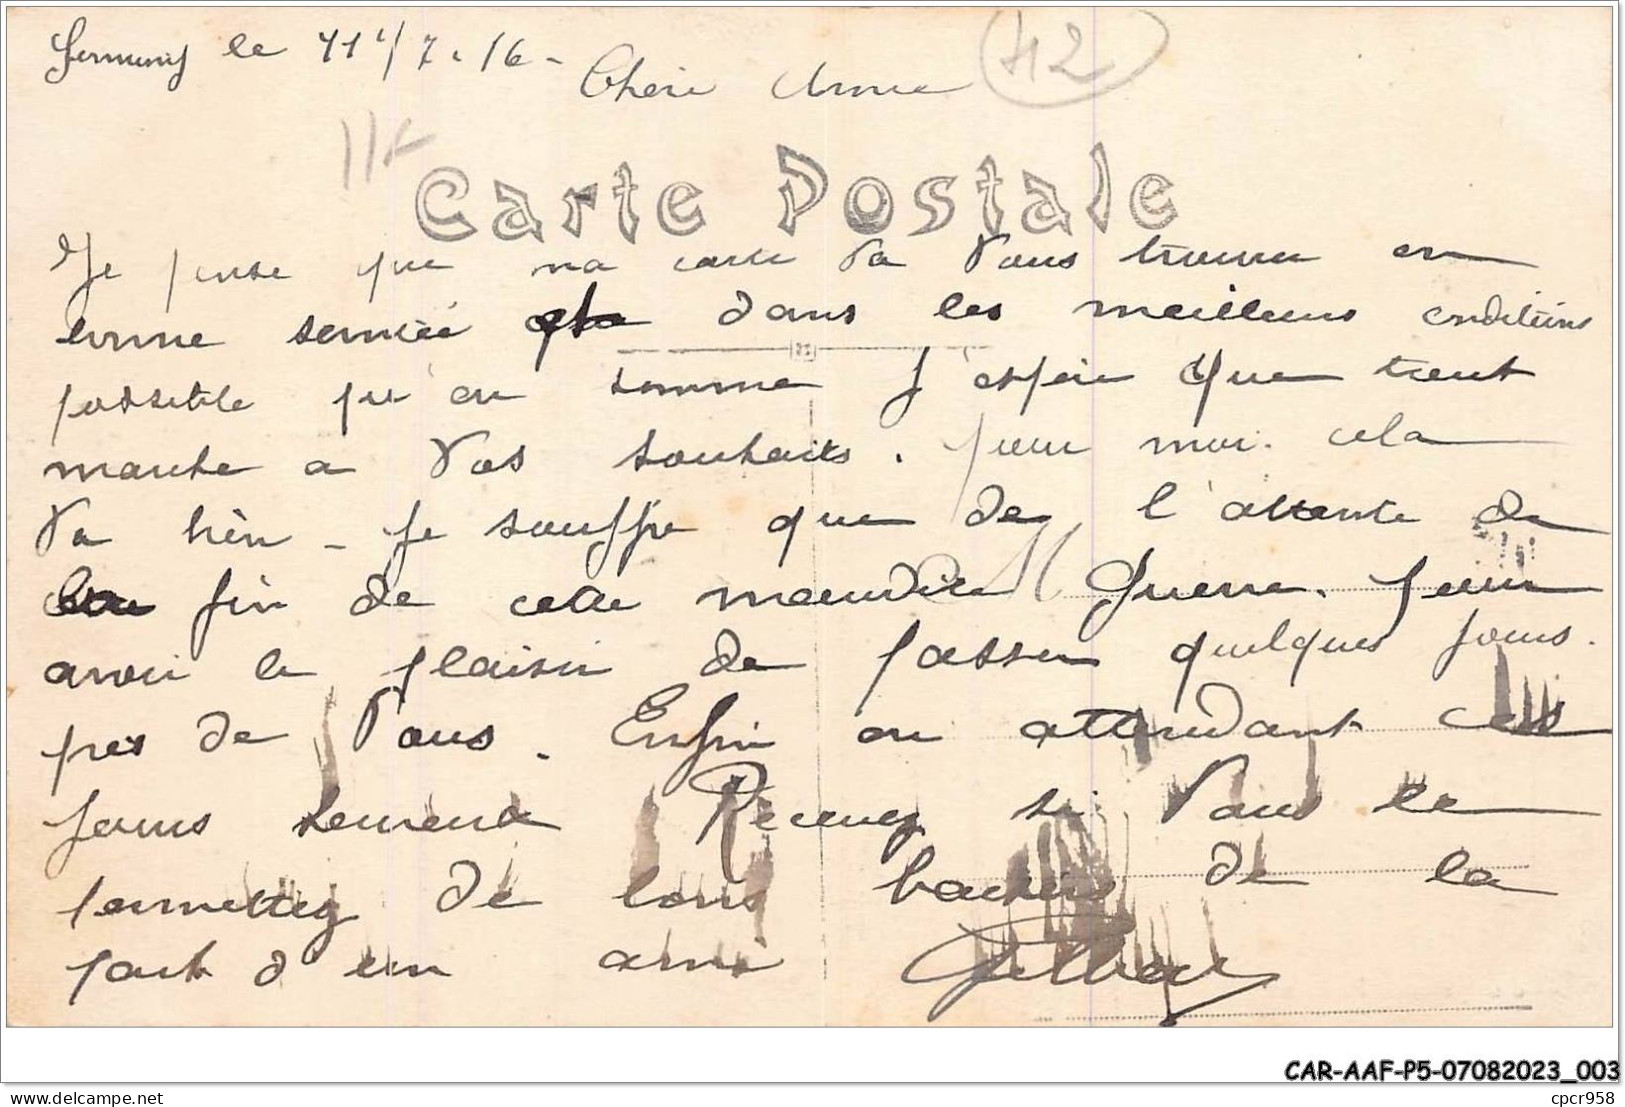 le 11/7.16 - Chère Anna
42
Carte Postale
Je pense que ma carte va vous trouver en
bonne sentée dans les meilleurs conditions
possible qu'en somme j'espère que tout
marche a vos souhaits. pour moi. cela
va bièn - je souffre que de l'attente de
fin de cette maudite Guerre. pour
avoir le plaisir de passer quelques jours.
pres de vous. Enfin en attendant ces
jours Recevez si vous le
permettez de bons baisers de la
part d'un ami
CAR-AAF-P5-07082023_003
delcampe.net
cpcr958